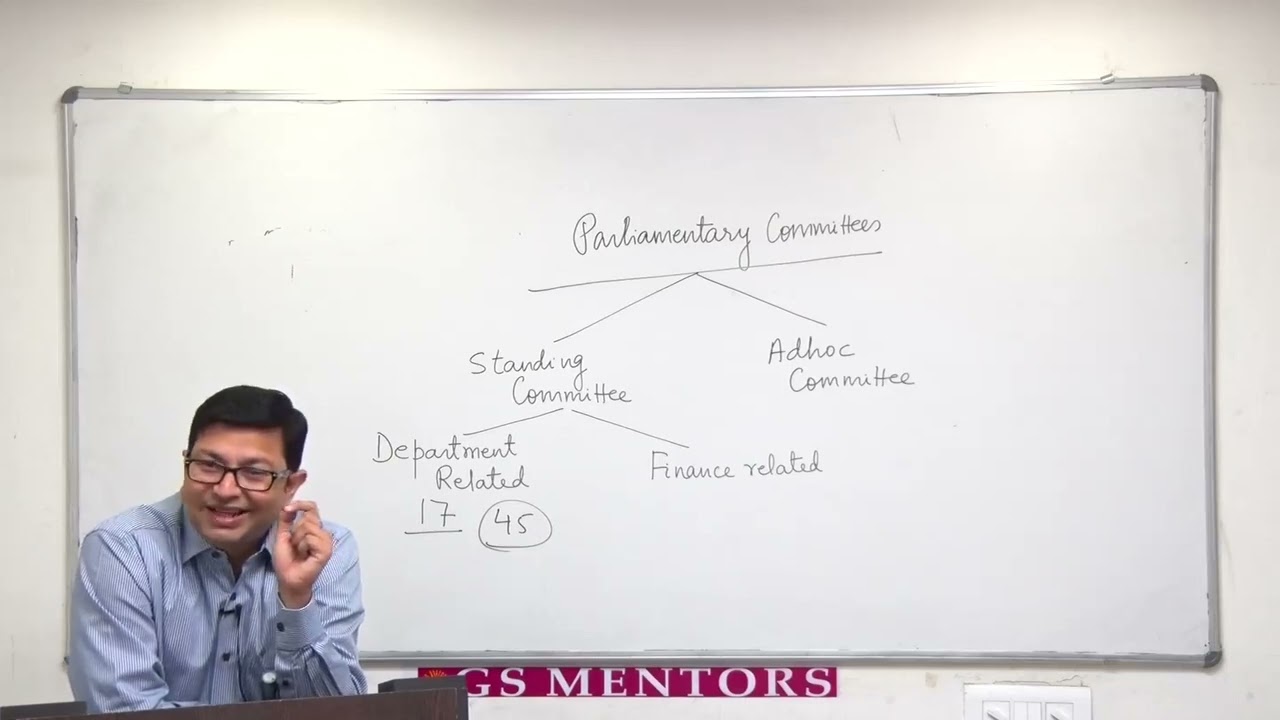 Parliamentary Committees
Standing
Committee
Adhoc
Committee
Department
Related
Finance related
17 45
GS MENTORS